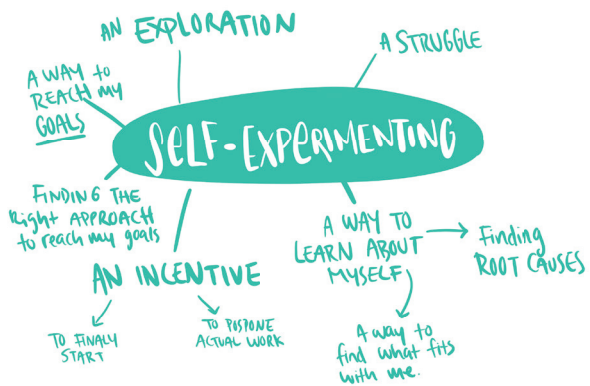 AN EXPLORATION
A STRUGGLE
A WAY to
REACH my
GOALS
SELF-EXPERIMENTING
FINDING THE
Right APPROACH
to reach my goals
AN INCENTIVE
TO FINALY
START
TO POSPONE
ACTUAL WORK
A WAY TO
LEARN ABOUT
MYSELF
Finding
ROOT CAUSES
A way to
find what fits
with me.